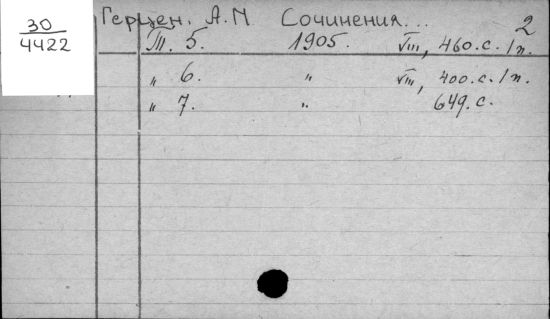 30
4422
Герцен. А. И. Сочинения... 2
Т. 5. 1905. VIII, 460.с. 1 п.
„ 6. „ VIII, 400.с. 1 п.
„ 7. „ 649.с.